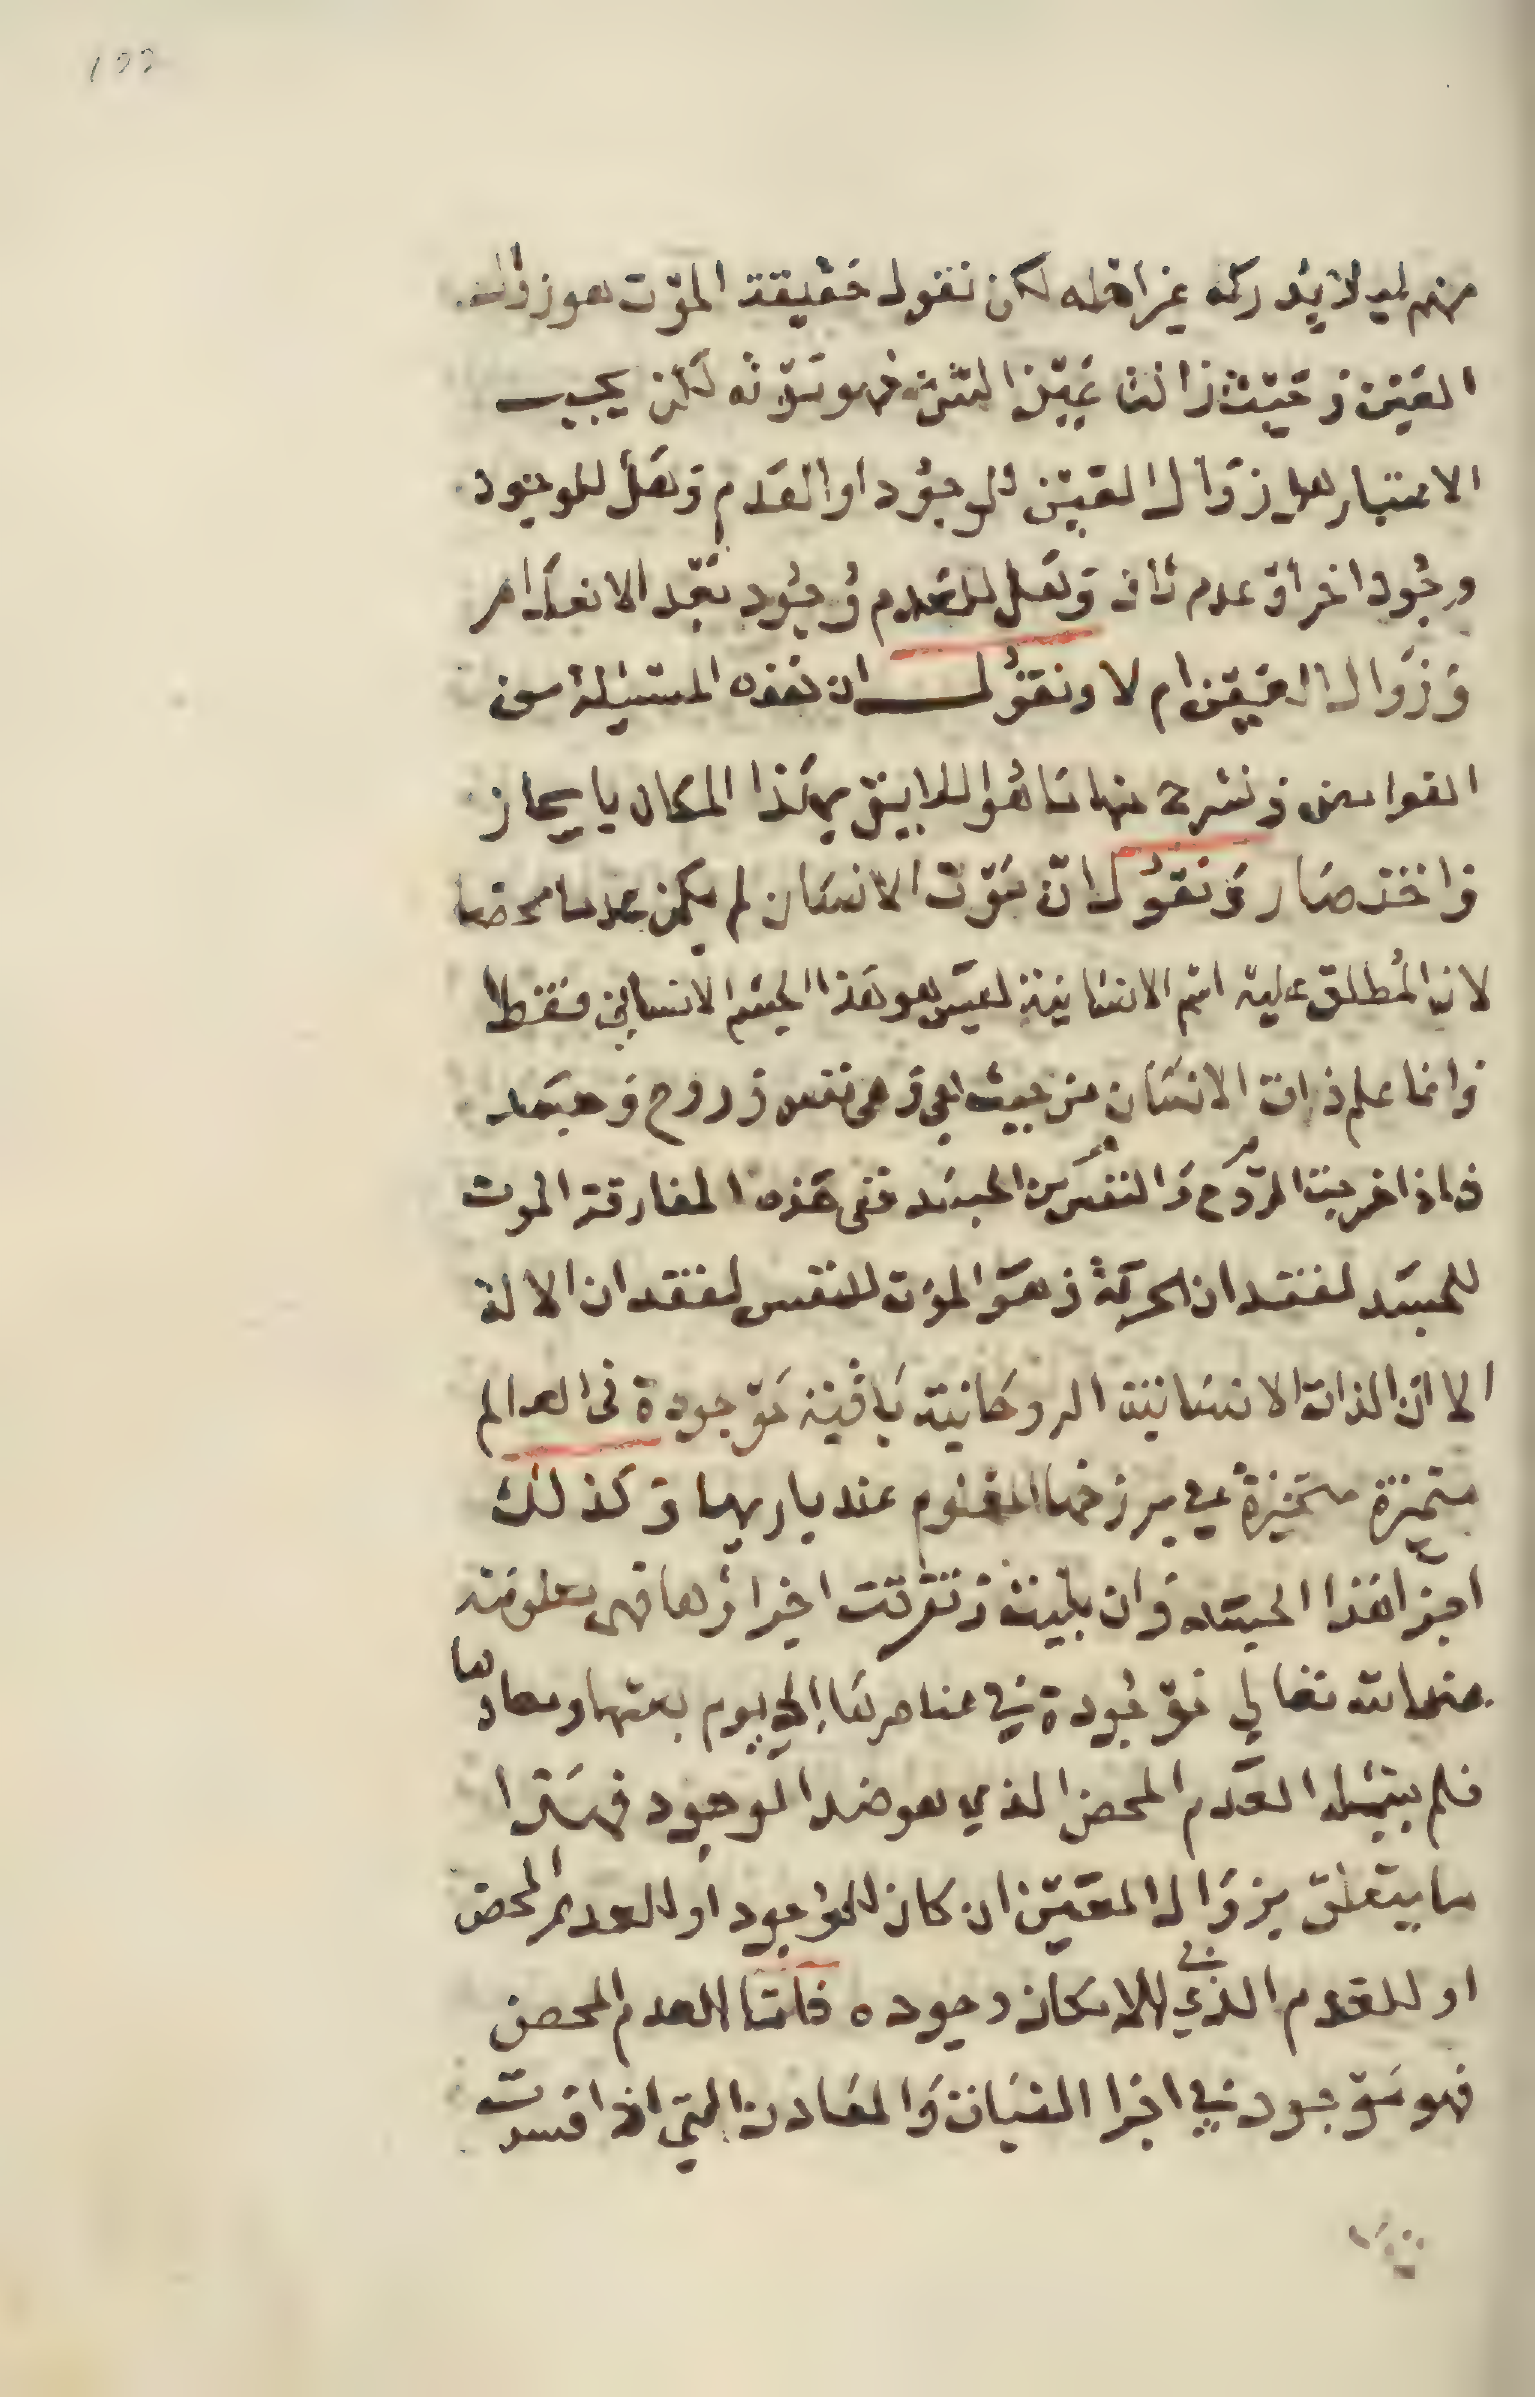 ١٢٢
لا يدركه غير اهله لكن نقول حقيقة الموت هو زوال
العين وحيث زالت عين الشي فهو موته لكن يجب
الاعتبار هل زوال العين للوجود او العدم وهل للموجود
وجود اخر او عدم ثان وهل للعدم وجود بعد الانعدام
وزوال العين ام لا ونقول ان هذه المسئلة من
الغوامض ونشرح منها ما هو اللايق بهذا المكان بايجاز
واختصار ونقول ان موت الانسان لم يكن عدما محضا
لان المطلق عليه اسم الانسانية ليس هو هذا الجسم الانساني فقط
وانما علم ذات الانسان من حيث هي وهي نفس وروح وجسد
فاذا خرجت الروح والنفس من الجسد ففي هذه المفارقة الموت
للجسد لفقدان الحركة وهو الموت للنفس لفقدان الالة
الا ان الذات الانسانية الروحانية باقية موجودة في العالم
متميزة متحيزة في برزخها المعلوم عند باريها وكذلك
اجزا هذا الجسد وان بليت وتفرقت اجزاؤها فهي معلومة
عند الله تعالي موجودة في عناصرها الي يوم بعثها ومعادها
فلم يبق العدم المحض الذي هو ضد الوجود فهذا
ما يتعلق بزوال العين ان كان للموجود او للعدم المحض
او للعدم الذي في الامكان وجوده فاما العدم المحض
فهو موجود في اجزا النبات والمعادن التي اذا فسدت